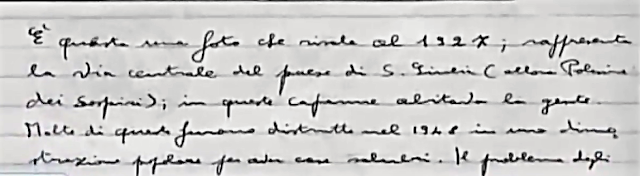 È questa una foto che risale al 1927; rappresenta
la via centrale del paese di S. (allora
dei); in queste capanne abitava la gente.
Molte di queste furono distrutte nel 1948 in una dimo
strazione popolare per aver case salubri. Il problema degli